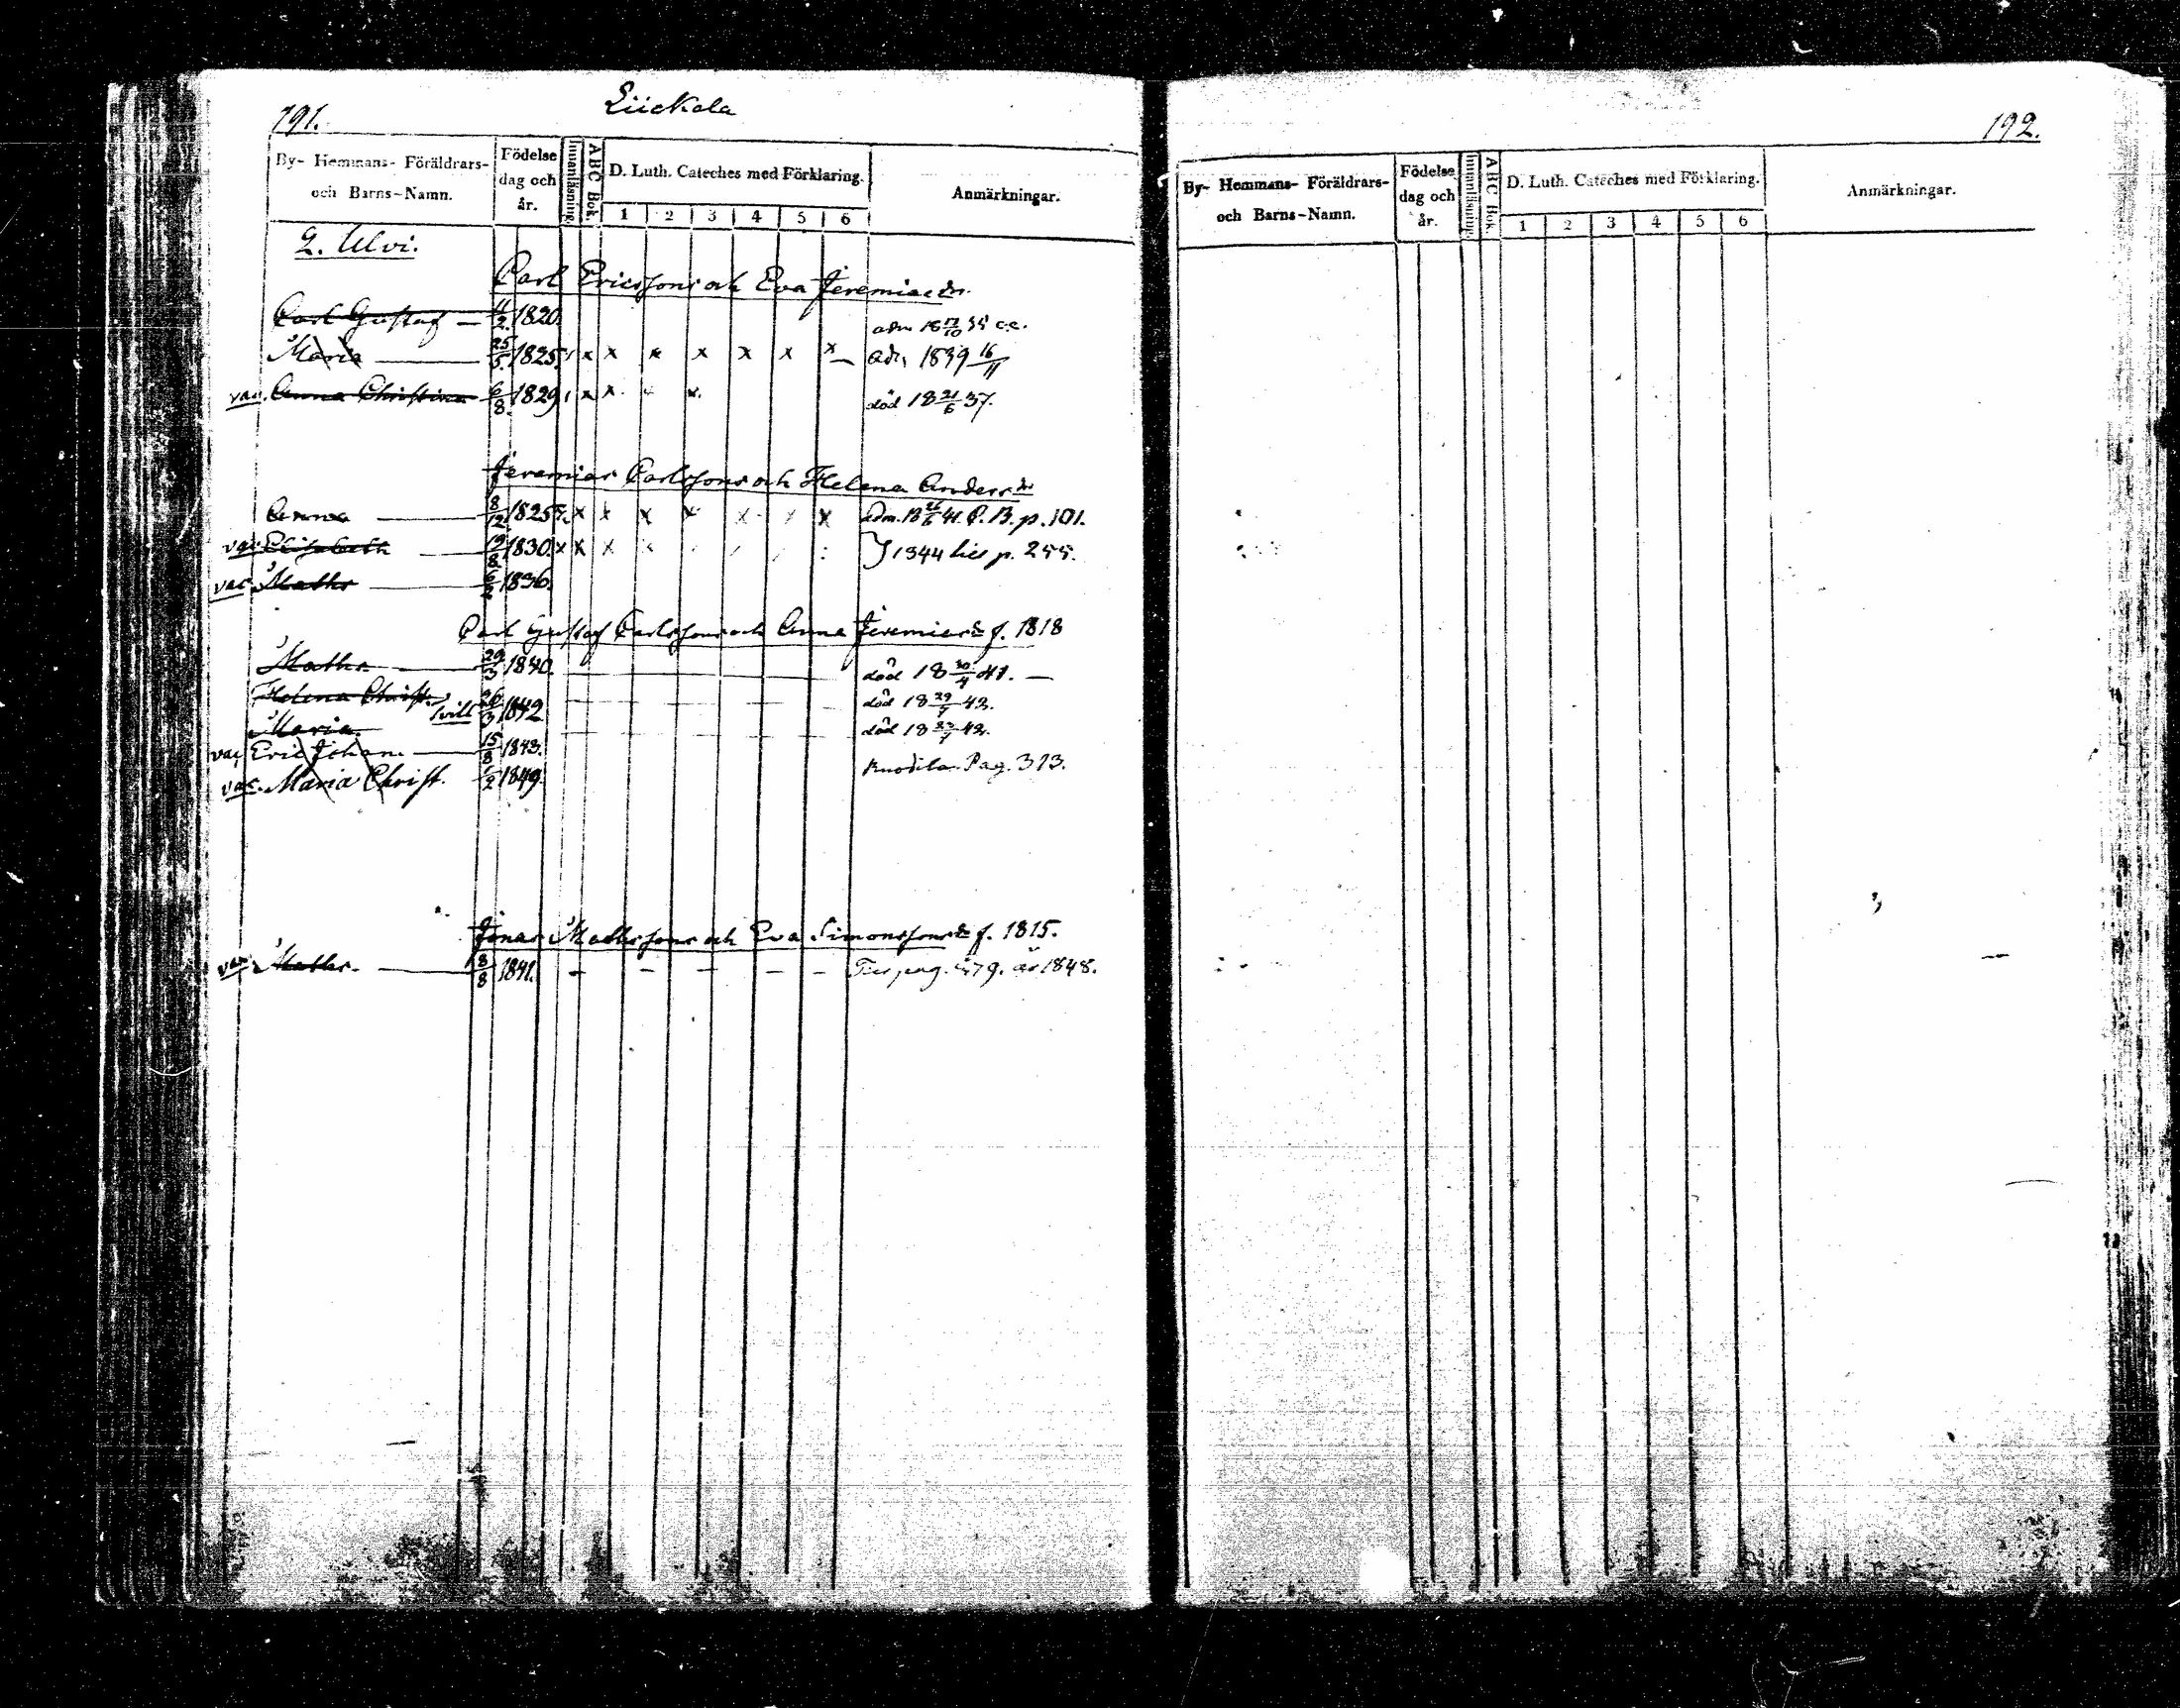 191.
Liickala
By- Hemmans- Föräldrars- och Barns-Namn.
Födelse dag och år.
Innanläsning.
ABC Bok.
D. Luth. Cateches med Förklaring.
1 2 3 4 5 6
Anmärkningar.
2. Ulvi.
Carl Ericssons och Eva Jeremiaedr.
Carl Gustaf — 11/2 1820.
Maria — 25/5 1825 x x x x x x x — adm 1839 16/11
vac. Anna Christina 6/8 1829 x x x död 18 21/6 37.
Jeremias Carlssons och Helena Andersdr
Anna — 8/12 1825 x x x x x / x adm. 18 41. C. B. p. 101.
vac Elisabeth — 19/8 1830. x x x 1844 lies p. 255.
vac Maths — 6/2 1836.
Carl Gustaf Carlssons och Anna Jeremiaedr f. 1818
Maths — 29/3 1840. död 18 30/4 41. —
Helena Christ. död 18 29/4 42.
Maria tvill 26/3 1842 död 18 42.
vac Eric Johan. — 15/8 1843.
Pag. 313.
vac. Maria Christ. 1849.
Jonas Mathssons och Eva Simonssonsdr f. 1815.
vac Maths. — 8/8 1841. — — — — — pag. 479. år 1848.
192.
By- Hemmans- Föräldrars- och Barns-Namn.
Födelse dag och år.
Innanläsning.
ABC Bok.
D. Luth. Cateches med Förklaring.
1 2 3 4 5 6
Anmärkningar.